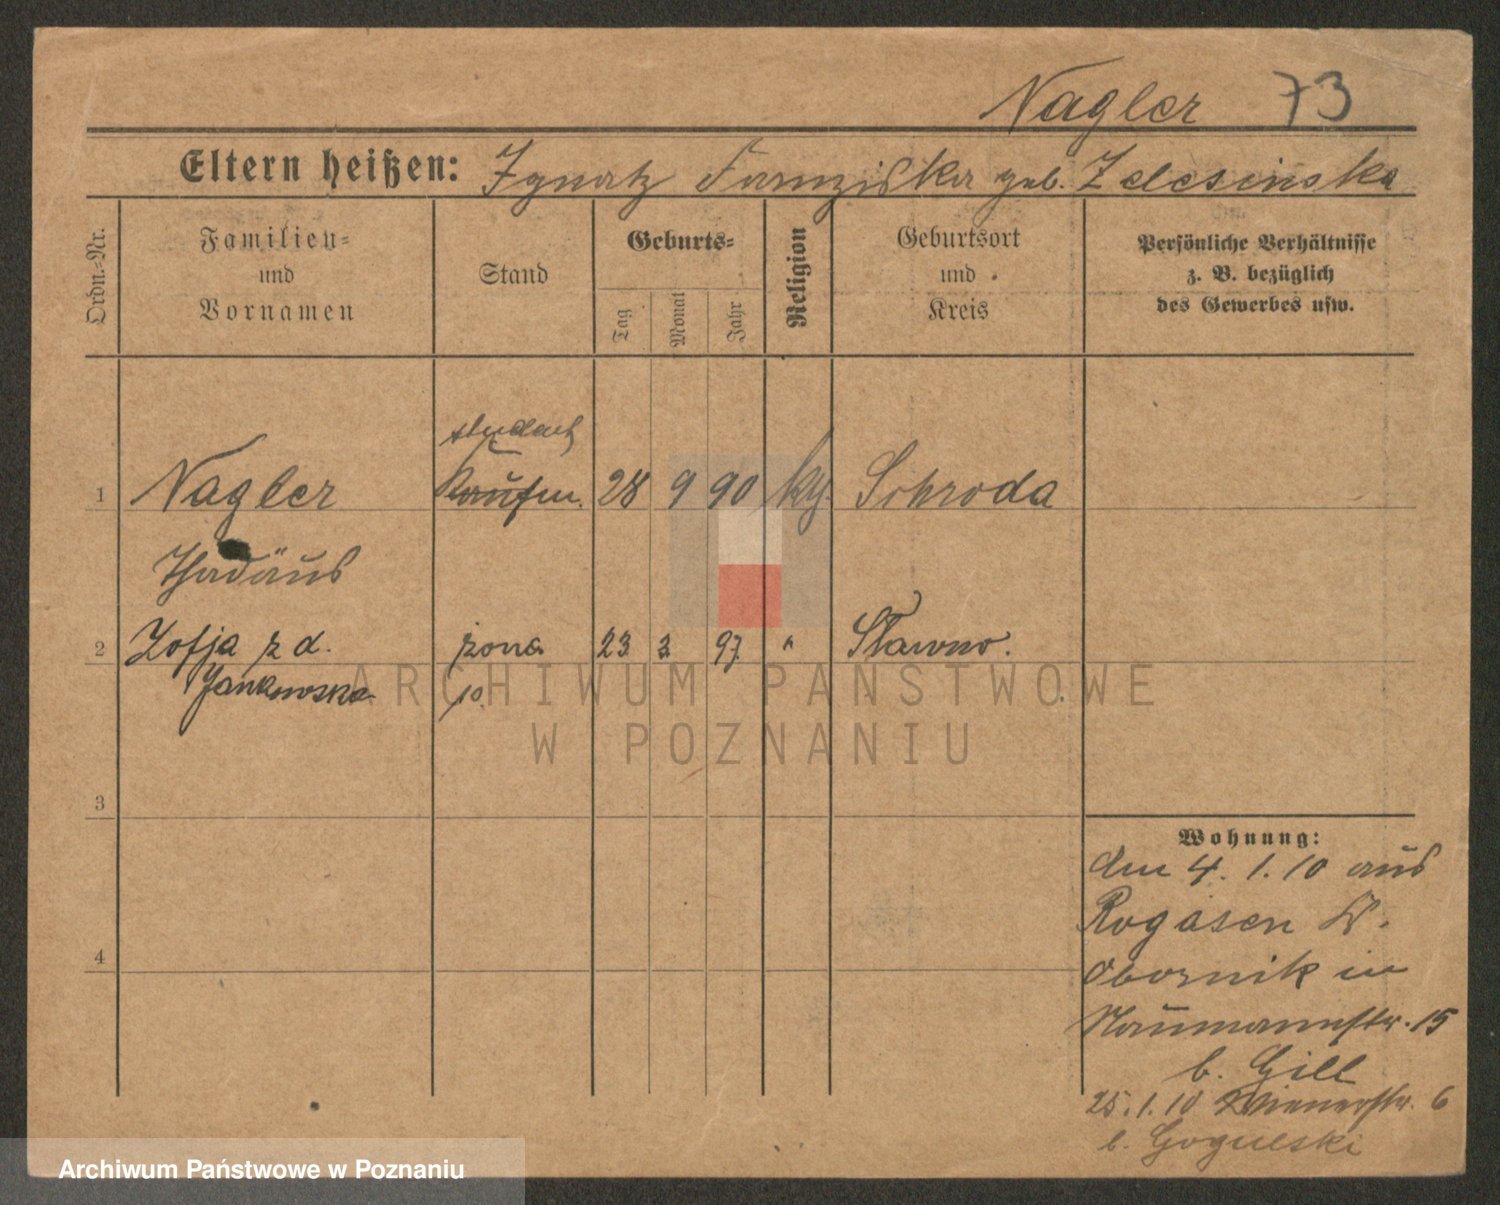 Nagler 73
Eltern heißen: Ignatz Franziska geb. Zelesinska
Ordn.-Nr.
Familien- und Vornamen
Stand
Geburts-
Tag
Monat
Jahr
Religion
Geburtsort und Kreis
Persönliche Verhältnisse z. B. bezüglich des Gewerbes usw.
student
1 Nagler Kaufm. 28 9 90 kg. Schroda
Thadäus
2 Zofja z d. żona 23 2 97 " Sławno.
Jankowska 10.
3
4
Wohnung:
den 4. 1. 10 aus
Rogasen K.
Obornik in
Naumannstr. 15
b. Gill
25. 1. 10 Wienerstr. 6
b. Gogulski
ARCHIWUM PAŃSTWOWE
W POZNANIU
Archiwum Państwowe w Poznaniu